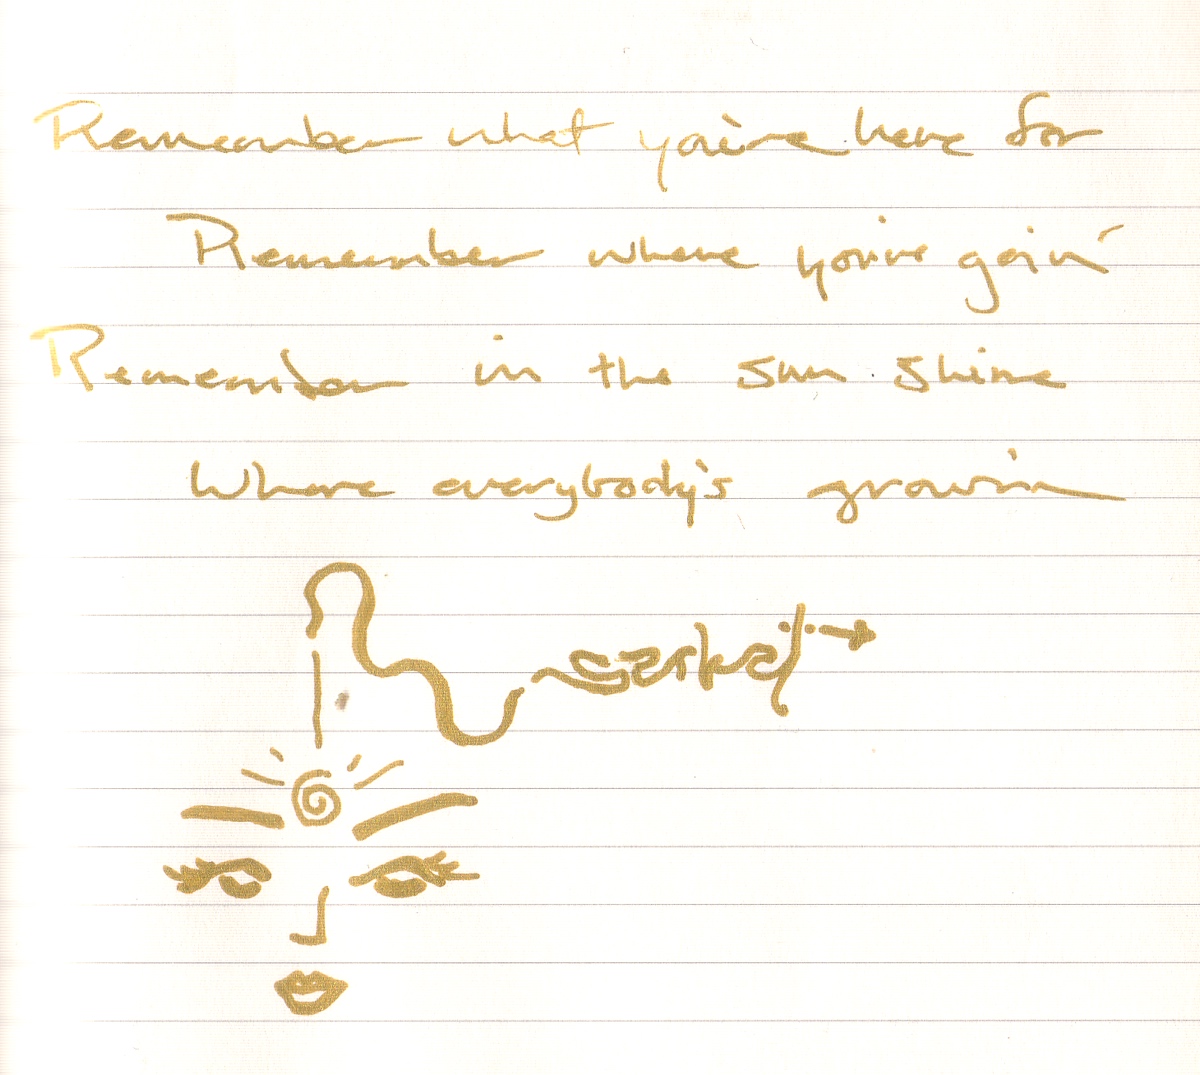 Remember what you're here for
Remember where you're goin'
Remember in the sun shine
Where everybody's growin